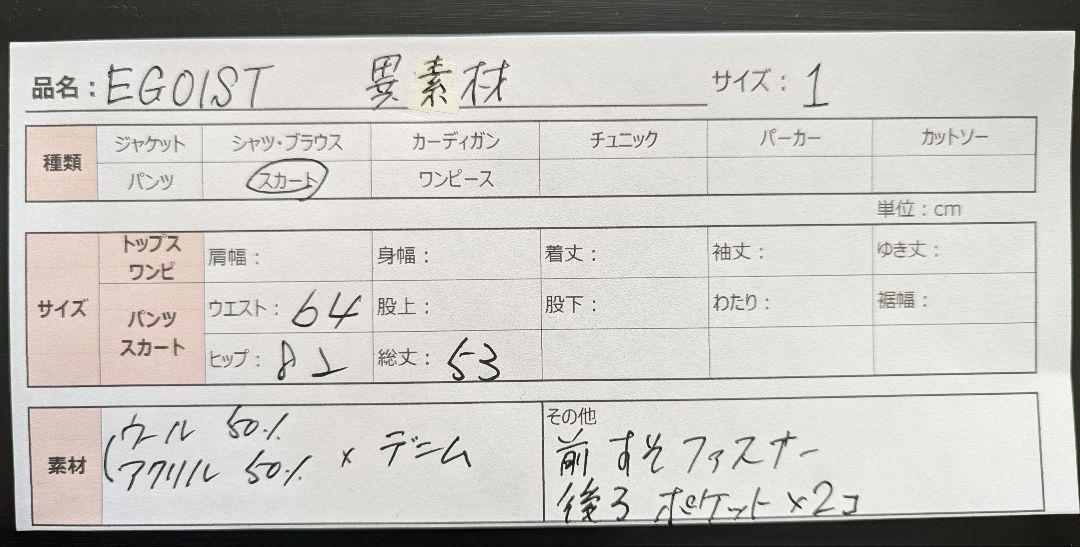 品名：EGOIST 異素材 サイズ：1
種類 ジャケット シャツ・ブラウス カーディガン チュニック パーカー カットソー
パンツ スカート ワンピース
単位：cm
サイズ トップス ワンピ 肩幅： 身幅： 着丈： 袖丈： ゆき丈：
パンツ スカート ウエスト：64 股上： 股下： わたり： 裾幅：
ヒップ：82 総丈：53
素材 (ウール 50% アクリル 50% × デニム
その他
前すそファスナー
後ろポケット×2コ